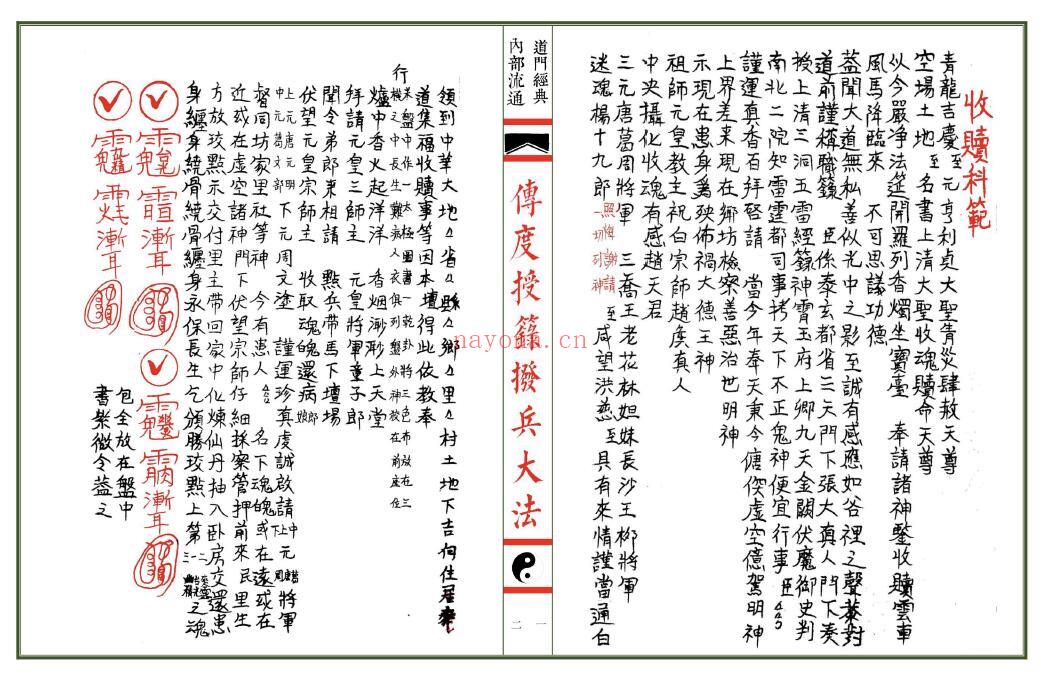 收贖科範
青龍吉慶至 元亨利貞大聖青災肆赦天尊
空場土地至 名書上清大聖收魂贖命天尊
以今嚴净法筵開羅列香燭坐寶臺 奉請諸神鑒收贖雲車
風馬降臨來 不可思議功德
蓋聞大道無私善似光中之影至誠有感應如谷裡之聲
道前謹稱職籙 臣係泰玄都省三天門下張大真人門下奏
授上清三洞五雷經籙神霄玉府上卿九天金闕伏魔御史判
南北二院知雷霆都司事拷天下不正鬼神便宜行事 臣
謹運真香百拜啓請 當今年奉天秉今 虚空億駕明神
上界差来現在鄉坊檢察善惡治世明神
示現在患身為殃佈禍大德王神
祖師元皇教主祝白宗師趙侯真人
中央攝化收魂有感趙天君
三元唐葛周將軍 三喬王老花林姐妹長沙王柳將軍
迷魂楊十九郎 一切列神 至咸望洪慈至具有來情謹當通白
道門經典
內部流通
傳度授籙撥兵大法
一
二
領到中華大地 省 縣 鄉 里 村土地下吉向住居奉
道集福收贖事等因本壇得此依教奉
行
爐中香火起洋洋 香烟渺渺上天堂
拜請元皇三師主 元皇將軍童子郎
聞令弟郎來祖請 點兵帶馬下壇場
伏望元皇宗師主 收取魂魄還病郎娘
下元周文塗 謹運珍真虔誠啟請 元 將軍
督同坊家里社等神 今有患人 名下魂魄或在遠或在
近或在虚空諸神門下伏望宗師仔細採察管押前來 民里生
方放珓點示交付里主帶回家中化煉仙丹抽入卧房交還患
身纏身統骨統骨纏身永保長生乞領勝珓點上第 之魂
包全放在盤中
書紫微令蓋之
nayona.cn